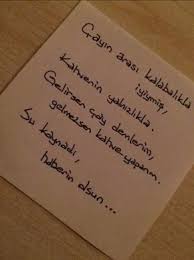 Çayın arası kalabalıkla
iyiymiş,
Kahvenin yalnızlıkla.
Gelirsen çay demlerim,
gelmezsen kahve yaparım.
Su kaynadı,
haberin olsun...